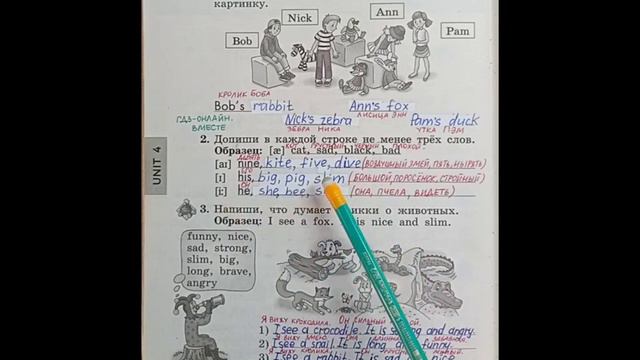 картинку.
Bob
Nick
Ann
Pam
КРОЛИК БОБА
Bob's rabbit
Ann's fox
ГДЗ-ОНЛАЙН.
ВМЕСТЕ
Nick's zebra
ЛИСИЦА ЭНН
Pam's duck
ЗЕБРА НИКА
УТКА ПЭМ
2. Допиши в каждой строке не менее трёх слов.
Образец: [æ] cat, sad, black, bad
[aɪ] nine, kite, five, dive (ВОЗДУШНЫЙ ЗМЕЙ, ПЯТЬ, НЫРЯТЬ)
[ɪ] his, big, pig, slim (БОЛЬШОЙ, ПОРОСЁНОК, СТРОЙНЫЙ)
[i:] he, she, bee, (ОНА, ПЧЕЛА, ВИДЕТЬ)
UNIT 4
3. Напиши, что думает о животных.
Образец: I see a fox. is nice and slim.
funny, nice,
sad, strong,
slim, big,
long, brave,
angry
Я ВИЖУ КРОКОДИЛА. ОН СИЛЬНЫЙ
1) I see a crocodile. It is strong and angry.
2) I see a snail. It is long and funny.
3) I see a rabbit. It is